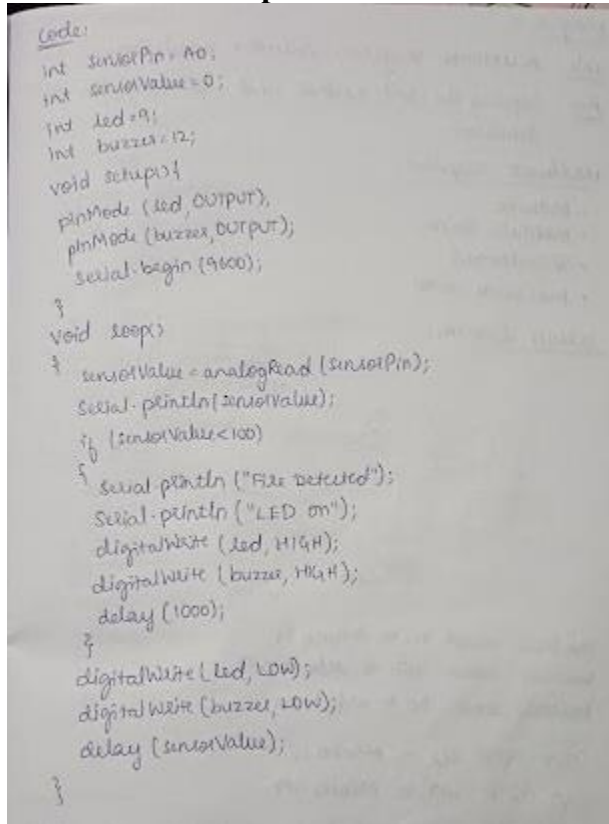 Code:
int sensorPin = A0;
int sensorValue = 0;
int led = 9;
int buzzer = 12;
void setup() {
pinMode (led, OUTPUT);
pinMode (buzzer, OUTPUT);
serial.begin (9600);
}
void loop()
{
sensorValue = analogRead (sensorPin);
Serial.println(sensorvalue);
if (sensorValue<100)
{
Serial.println ("Fire Detected");
Serial.println ("LED on");
digitalWrite (led, HIGH);
digitalWrite (buzzer, HIGH);
delay (1000);
}
digitalWrite (led, LOW);
digitalWrite (buzzer, LOW);
delay (sensorValue);
}